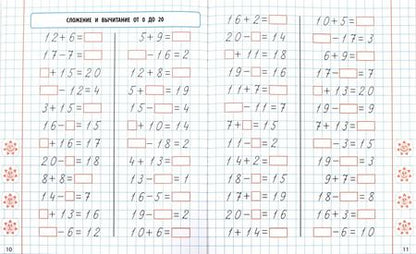 СЛОЖЕНИЕ И ВЫЧИТАНИЕ ОТ 0 ДО 20
12+6=
17-7=
+15=20
-12=4
3+15=
16-=15
+16=17
20-=18
8+8=
14-=7
+13=16
-6=12
5+9=
-16=2
12+8=
5+=19
15-=4
+10=14
-18=2
4+13=
13-=1
16-5=
19-=2
10+6=
10
16+2=
20-=14
+11=18
19-=16
11+7=
-11=7
7+=15
11-=2
14+2=
18-=15
17+=19
20-=16
1+14=
10+5=
-17=3
6+9=
17-=7
+13=20
19-=9
7+13=
-3=15
19-=3
9+7=
18-=8
16+3=
-6=10
11